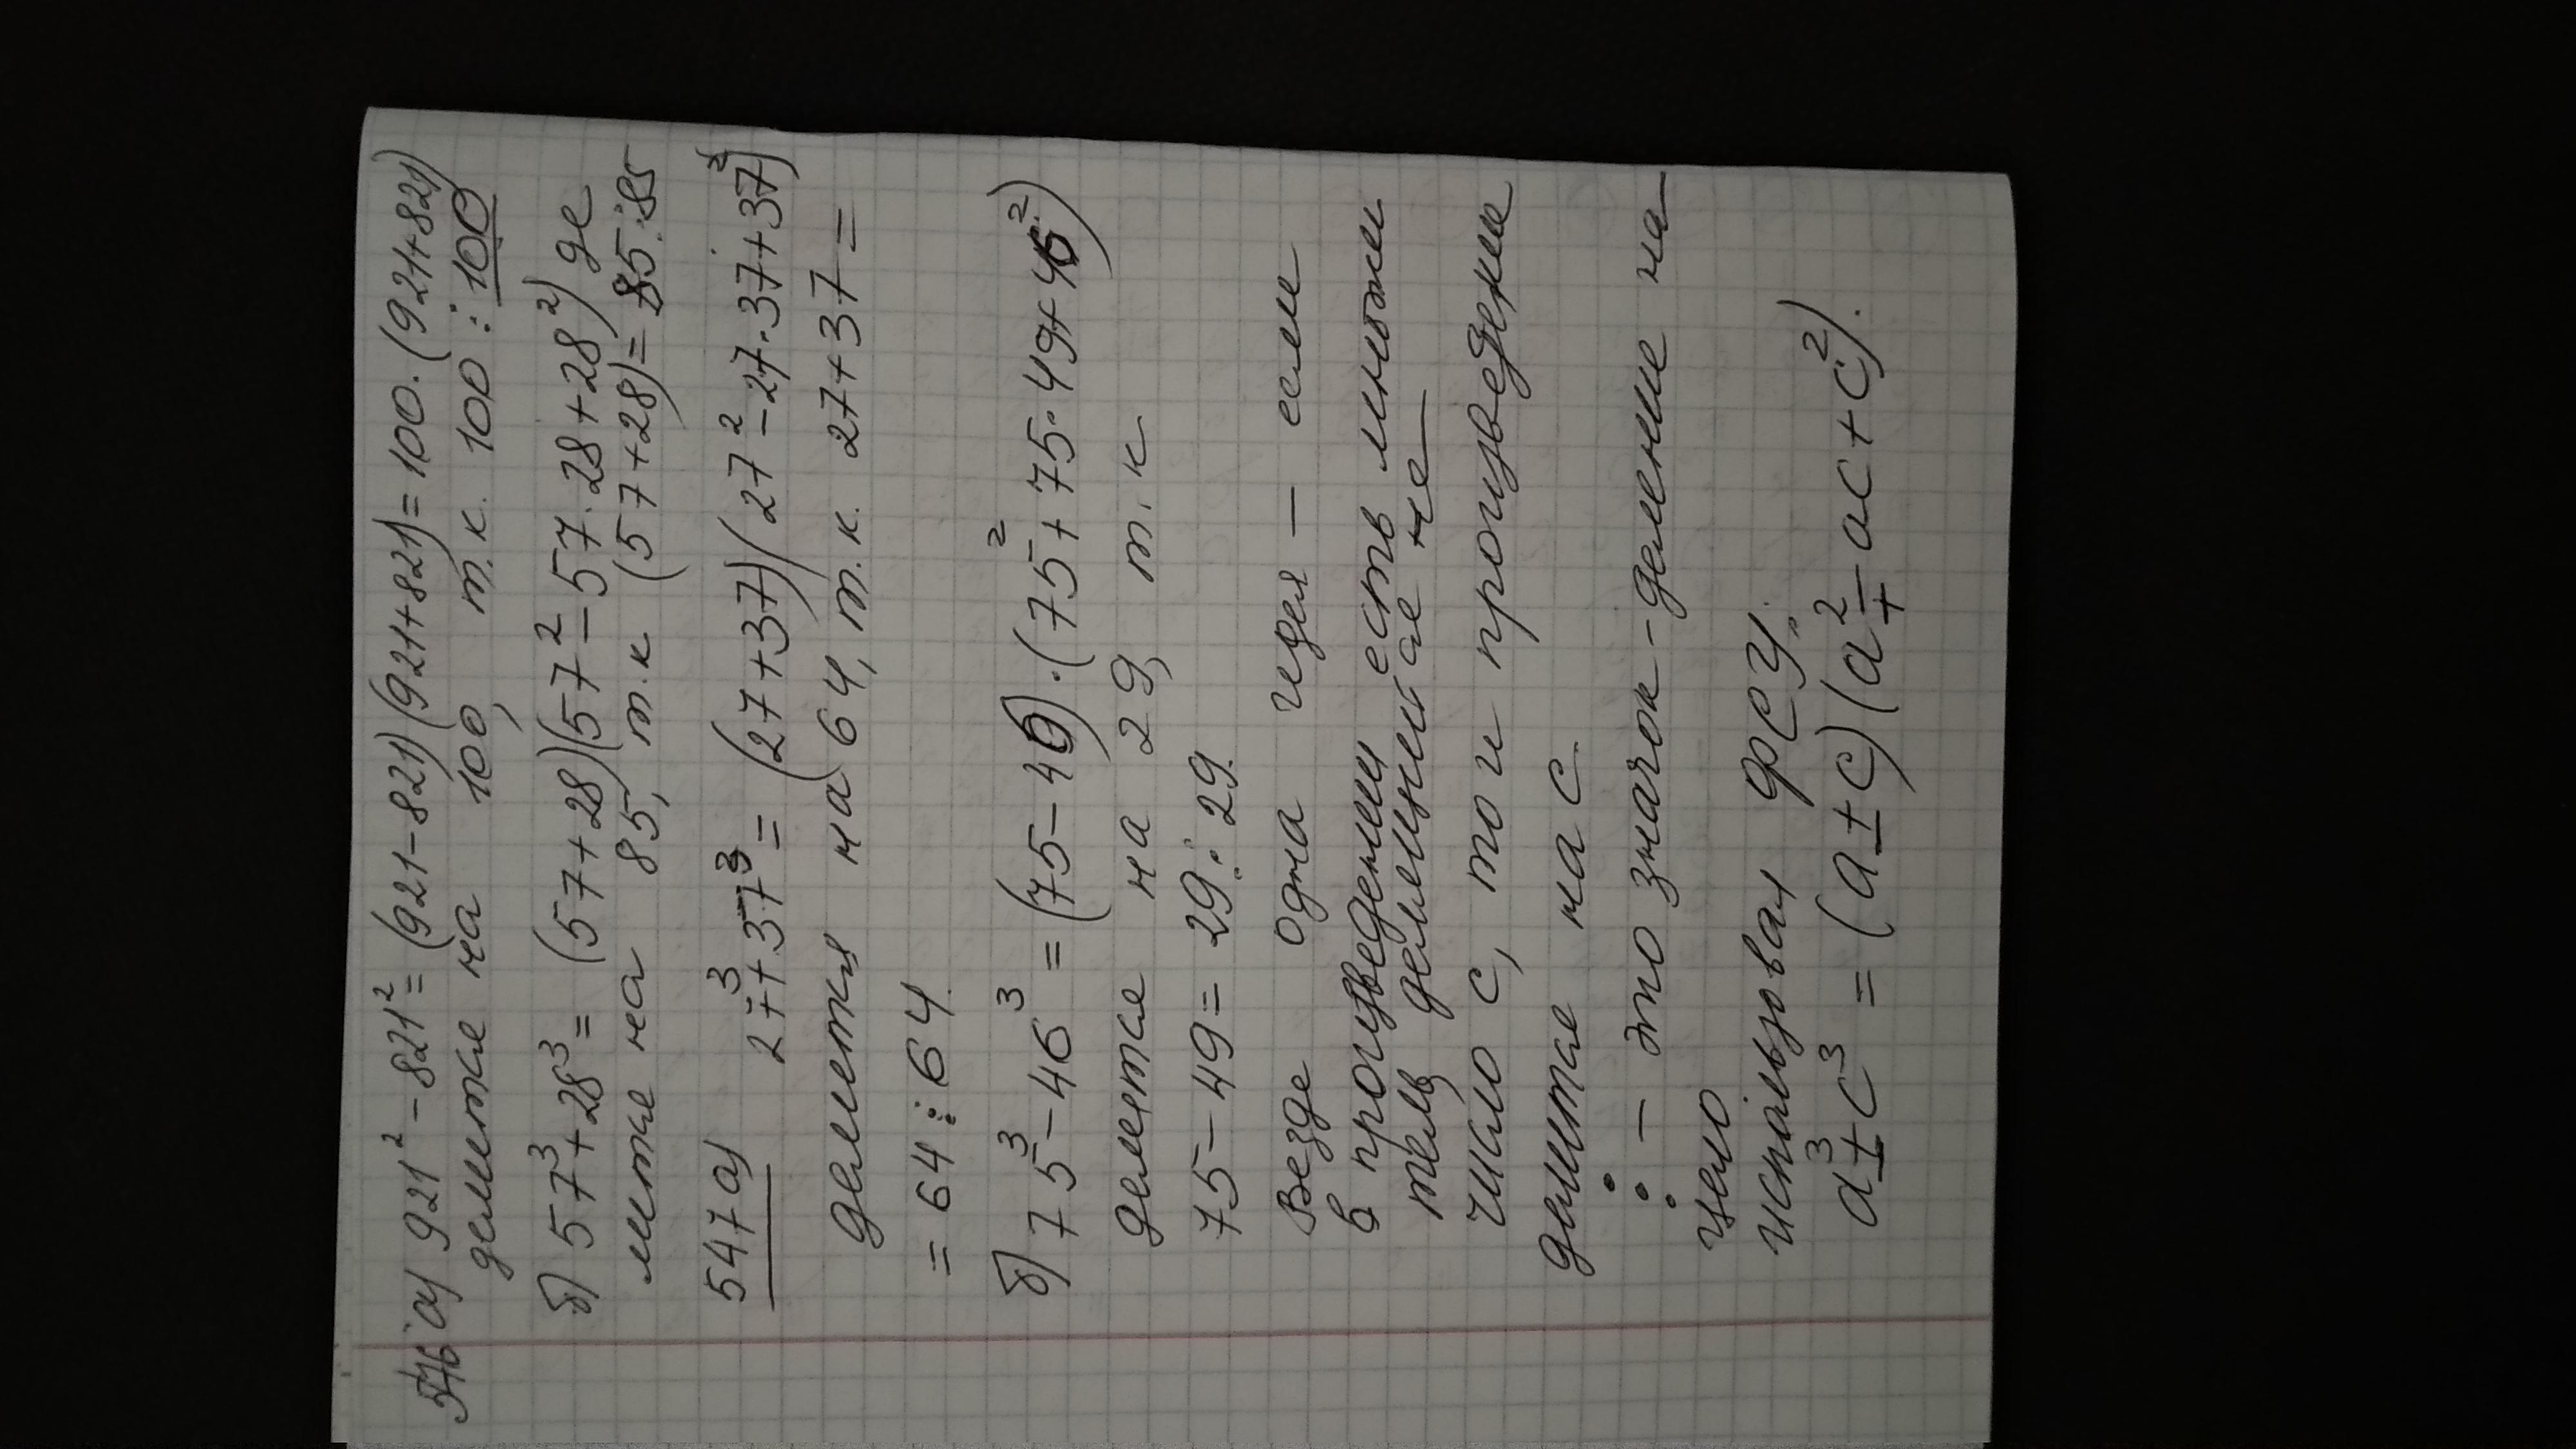 546 а) 921² - 821² = (921-821)(921+821) = 100·(921+821)
делитсе на 100, т.к. 100 ⋮ 100
б) 57³ + 28³ = (57+28)(57² - 57·28 + 28²) де
литсе на 85, т.к (57+28) = 85 ⋮ 85
547 а)
27³ + 37³ = (27+37)(27² - 27·37 + 37²)
делится на 64, т.к. 27+37 =
= 64 ⋮ 64.
б) 75³ - 46³ = (75-46)·(75² + 75·49 + 46²)
делитсе на 29, т.к
75 - 49 = 29 ⋮ 29.
Везде одна идея - если
в произведении есть множи
тель делещийсе на
число с, то и произведение
делитсе на с.
⋮ - это значок - деление на
цело
использовал ФСУ:
a³ ± c³ = (a ± c)(a² ∓ ac + c²).